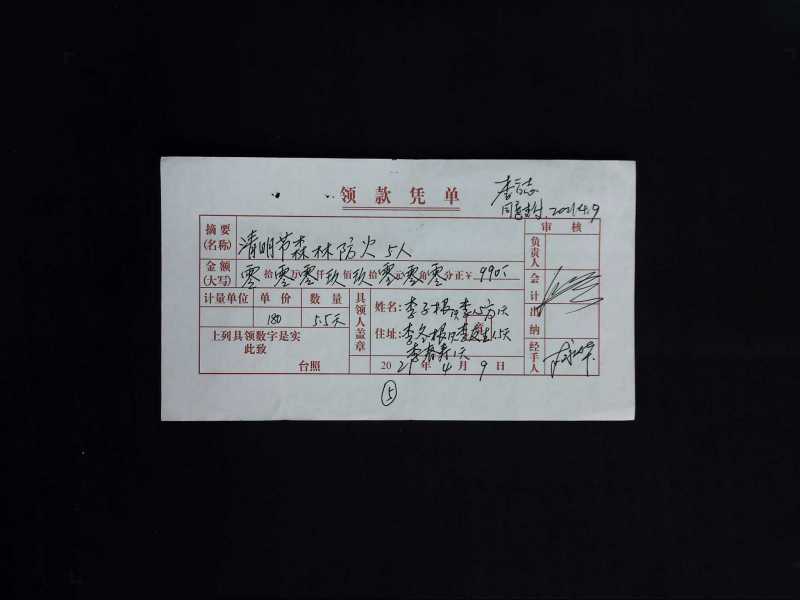 领款凭单
同意支付 2021.4.9
审核
摘要(名称) 清明节森林防火 5人
金额(大写) 零拾零万零仟玖佰玖拾零元零角零分正¥ 990元
计量单位 单价 数量
180 5.5天
上列具领数字是实
此致
台照
具领人盖章
姓名:李子根
住址:李冬根
李春寿1天
2021年4月9日
负责人
会计
出纳
经手人
⑤